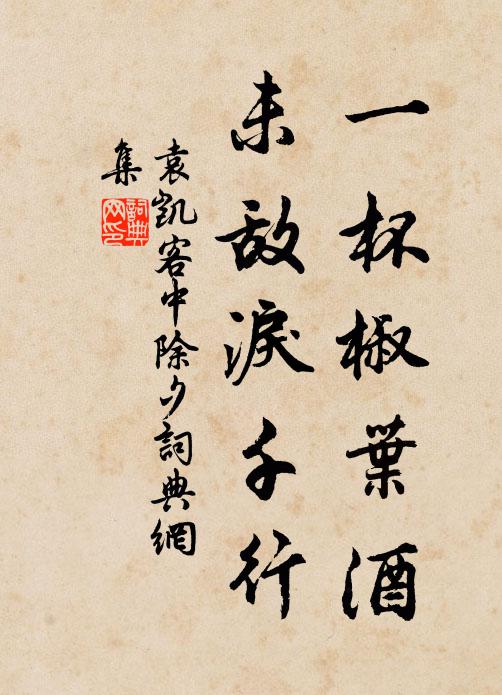 一杯椒葉酒
未敵淚千行
袁凱客中除夕詞典網
集
詞典
网印